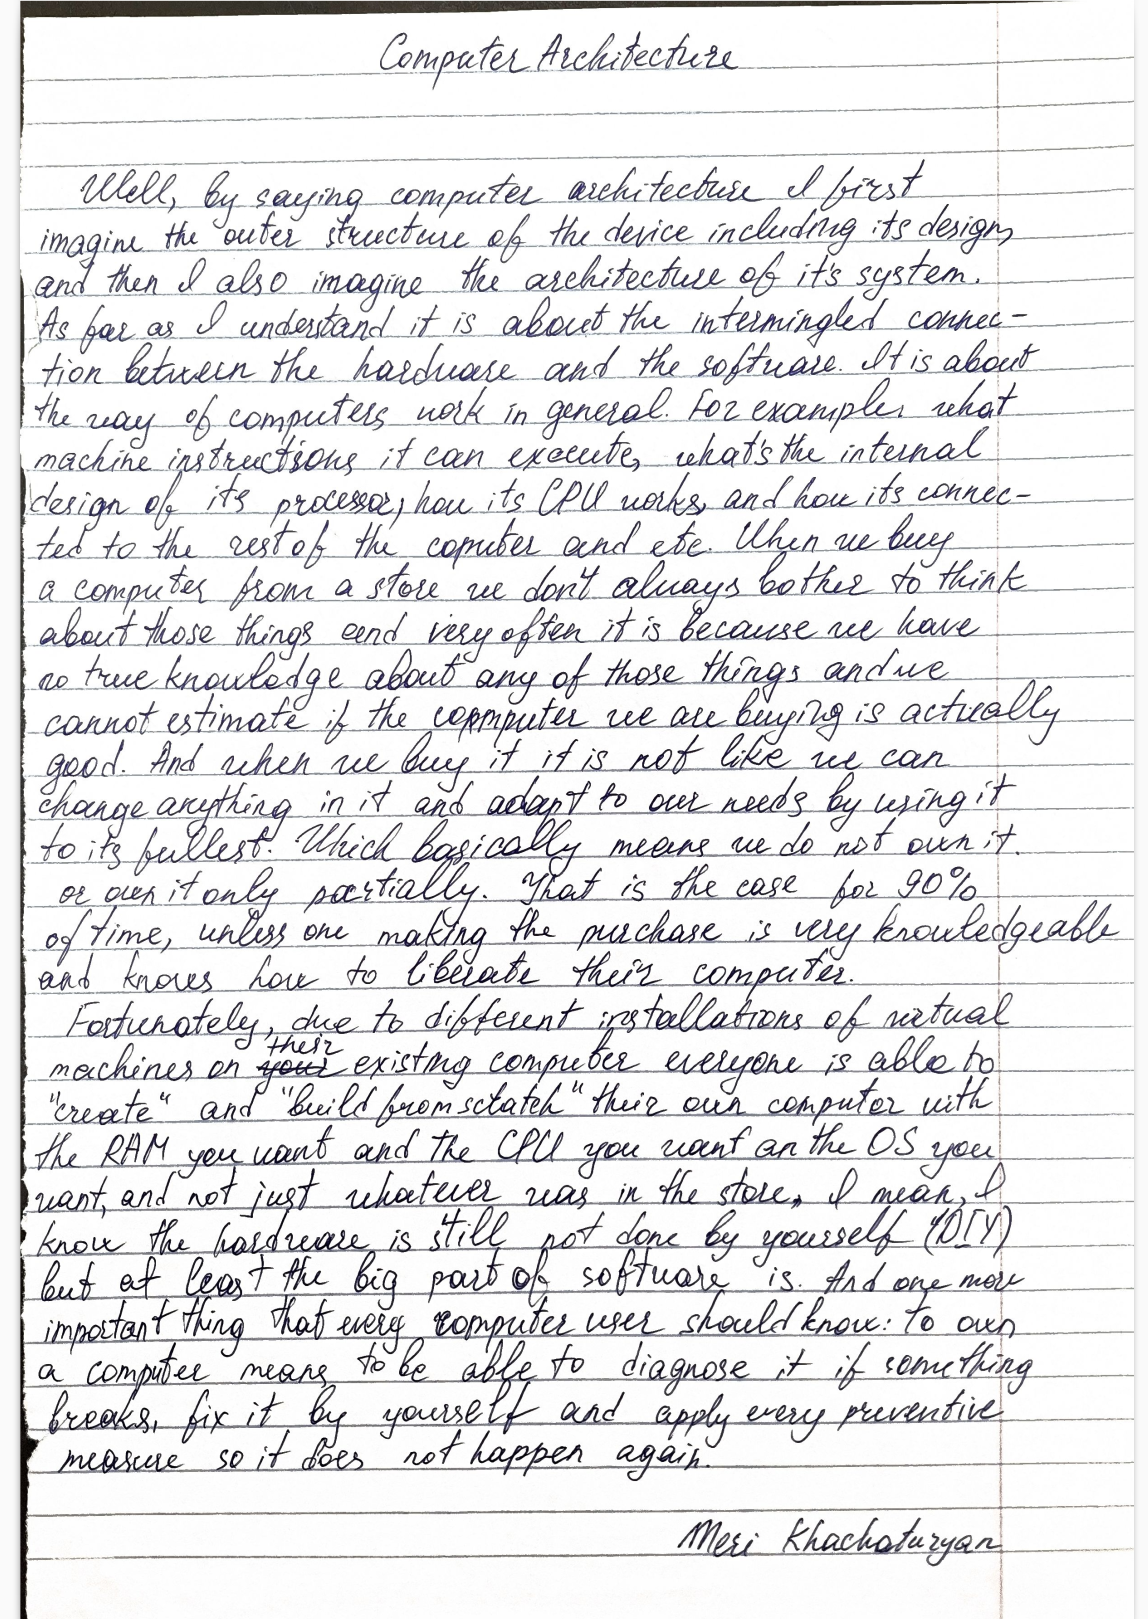 Computer Architecture
Well, by saying computer architecture I first
imagine the outer structure of the device including its design,
and then I also imagine the architecture of it's system.
As far as I understand it is about the intermingled connec-
tion between the hardware and the software. It is about
the way of computers work in general. For example, what
machine instructions it can execute, what's the internal
design of its processor, how its CPU works, and how its connec-
ted to the rest of the coputer and etc. When we buy
a computer from a store we don't always bother to think
about those things and very often it is because we have
no true knowledge about any of those things and we
cannot estimate if the copmputer we are buying is actually
good. And when we buy it it is not like we can
change anything in it and adapt to our needs by using it
to its fullest. Which basically means we do not own it.
or own it only partially. That is the case for 90%
of time, unless one making the purchase is very knowledgeable
and knows how to liberate their computer.
Fortunately, due to different installations of virtual
their
machines on your existing computer everyone is able to
"create" and "build from sctatch" their own computer with
the RAM you want and the CPU you want an the OS you
want, and not just whatever was in the store, I mean, I
know the hardware is still not done by yourself (DIY)
but at least the big part of software is. And one more
important thing that every computer user should know: to own
a computer means to be able to diagnose it if something
breaks, fix it by yourself and apply every preventive
measure so it does not happen again.
Meri Khachaturyan